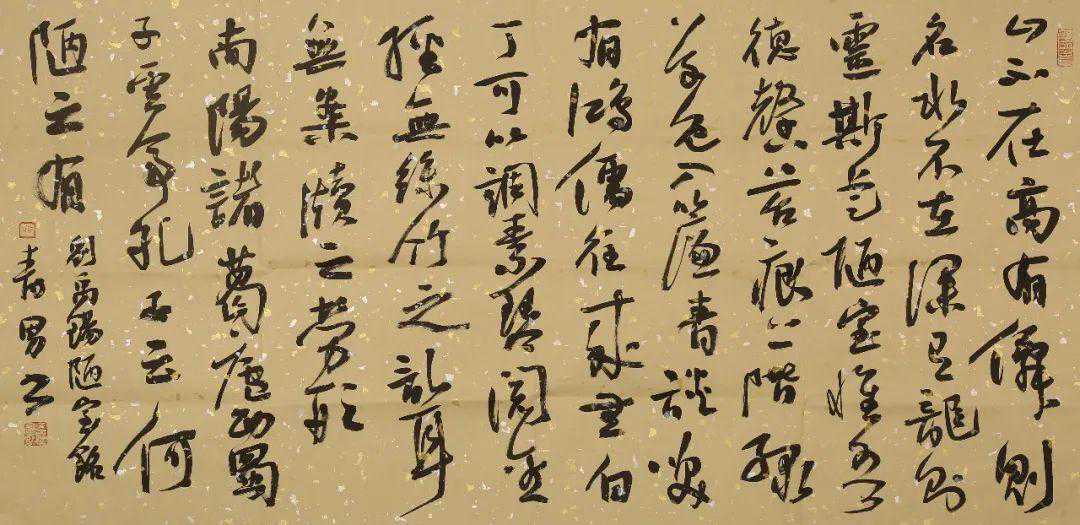 山不在高有僊則
名水不在深有龍則
靈斯是陋室惟吾
德馨苔痕上階綠
草色入簾青談笑
有鴻儒往來無白
丁可以調素琴閱金
經無絲竹之亂耳
無案牘之勞形
南陽諸葛廬西蜀
子雲亭孔子云何
陋之有
劉禹錫陋室銘
男書